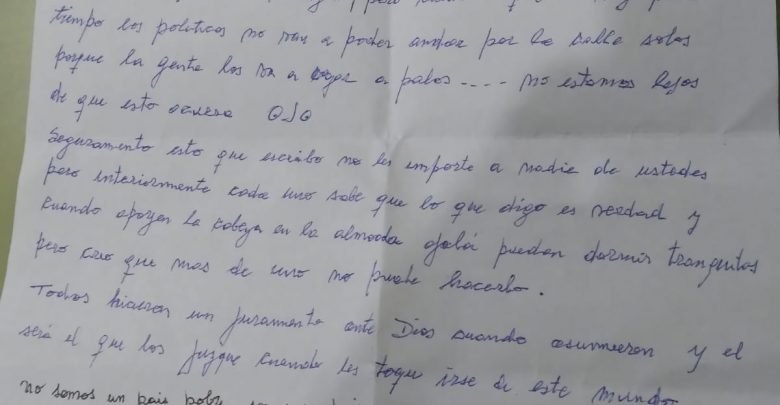 tiempo los politicos no van a poder andar por la calle solos
porque la gente los va a a palos.... no estamos lejos
de que esto ocurra OJO
Seguramente esto que escribo no les importe a nadie de ustedes
pero interiormente cada uno sabe que lo que digo es verdad y
cuando apoyen la cabeza en la almoada ojalá puedan dormir tranquilos
pero creo que mas de uno no puede hacerlo.
Todos hicieron un juramento ante Dios cuando asumieron y el
será el que los juzgue cuando les toque irse de este mundo
no somos un pais